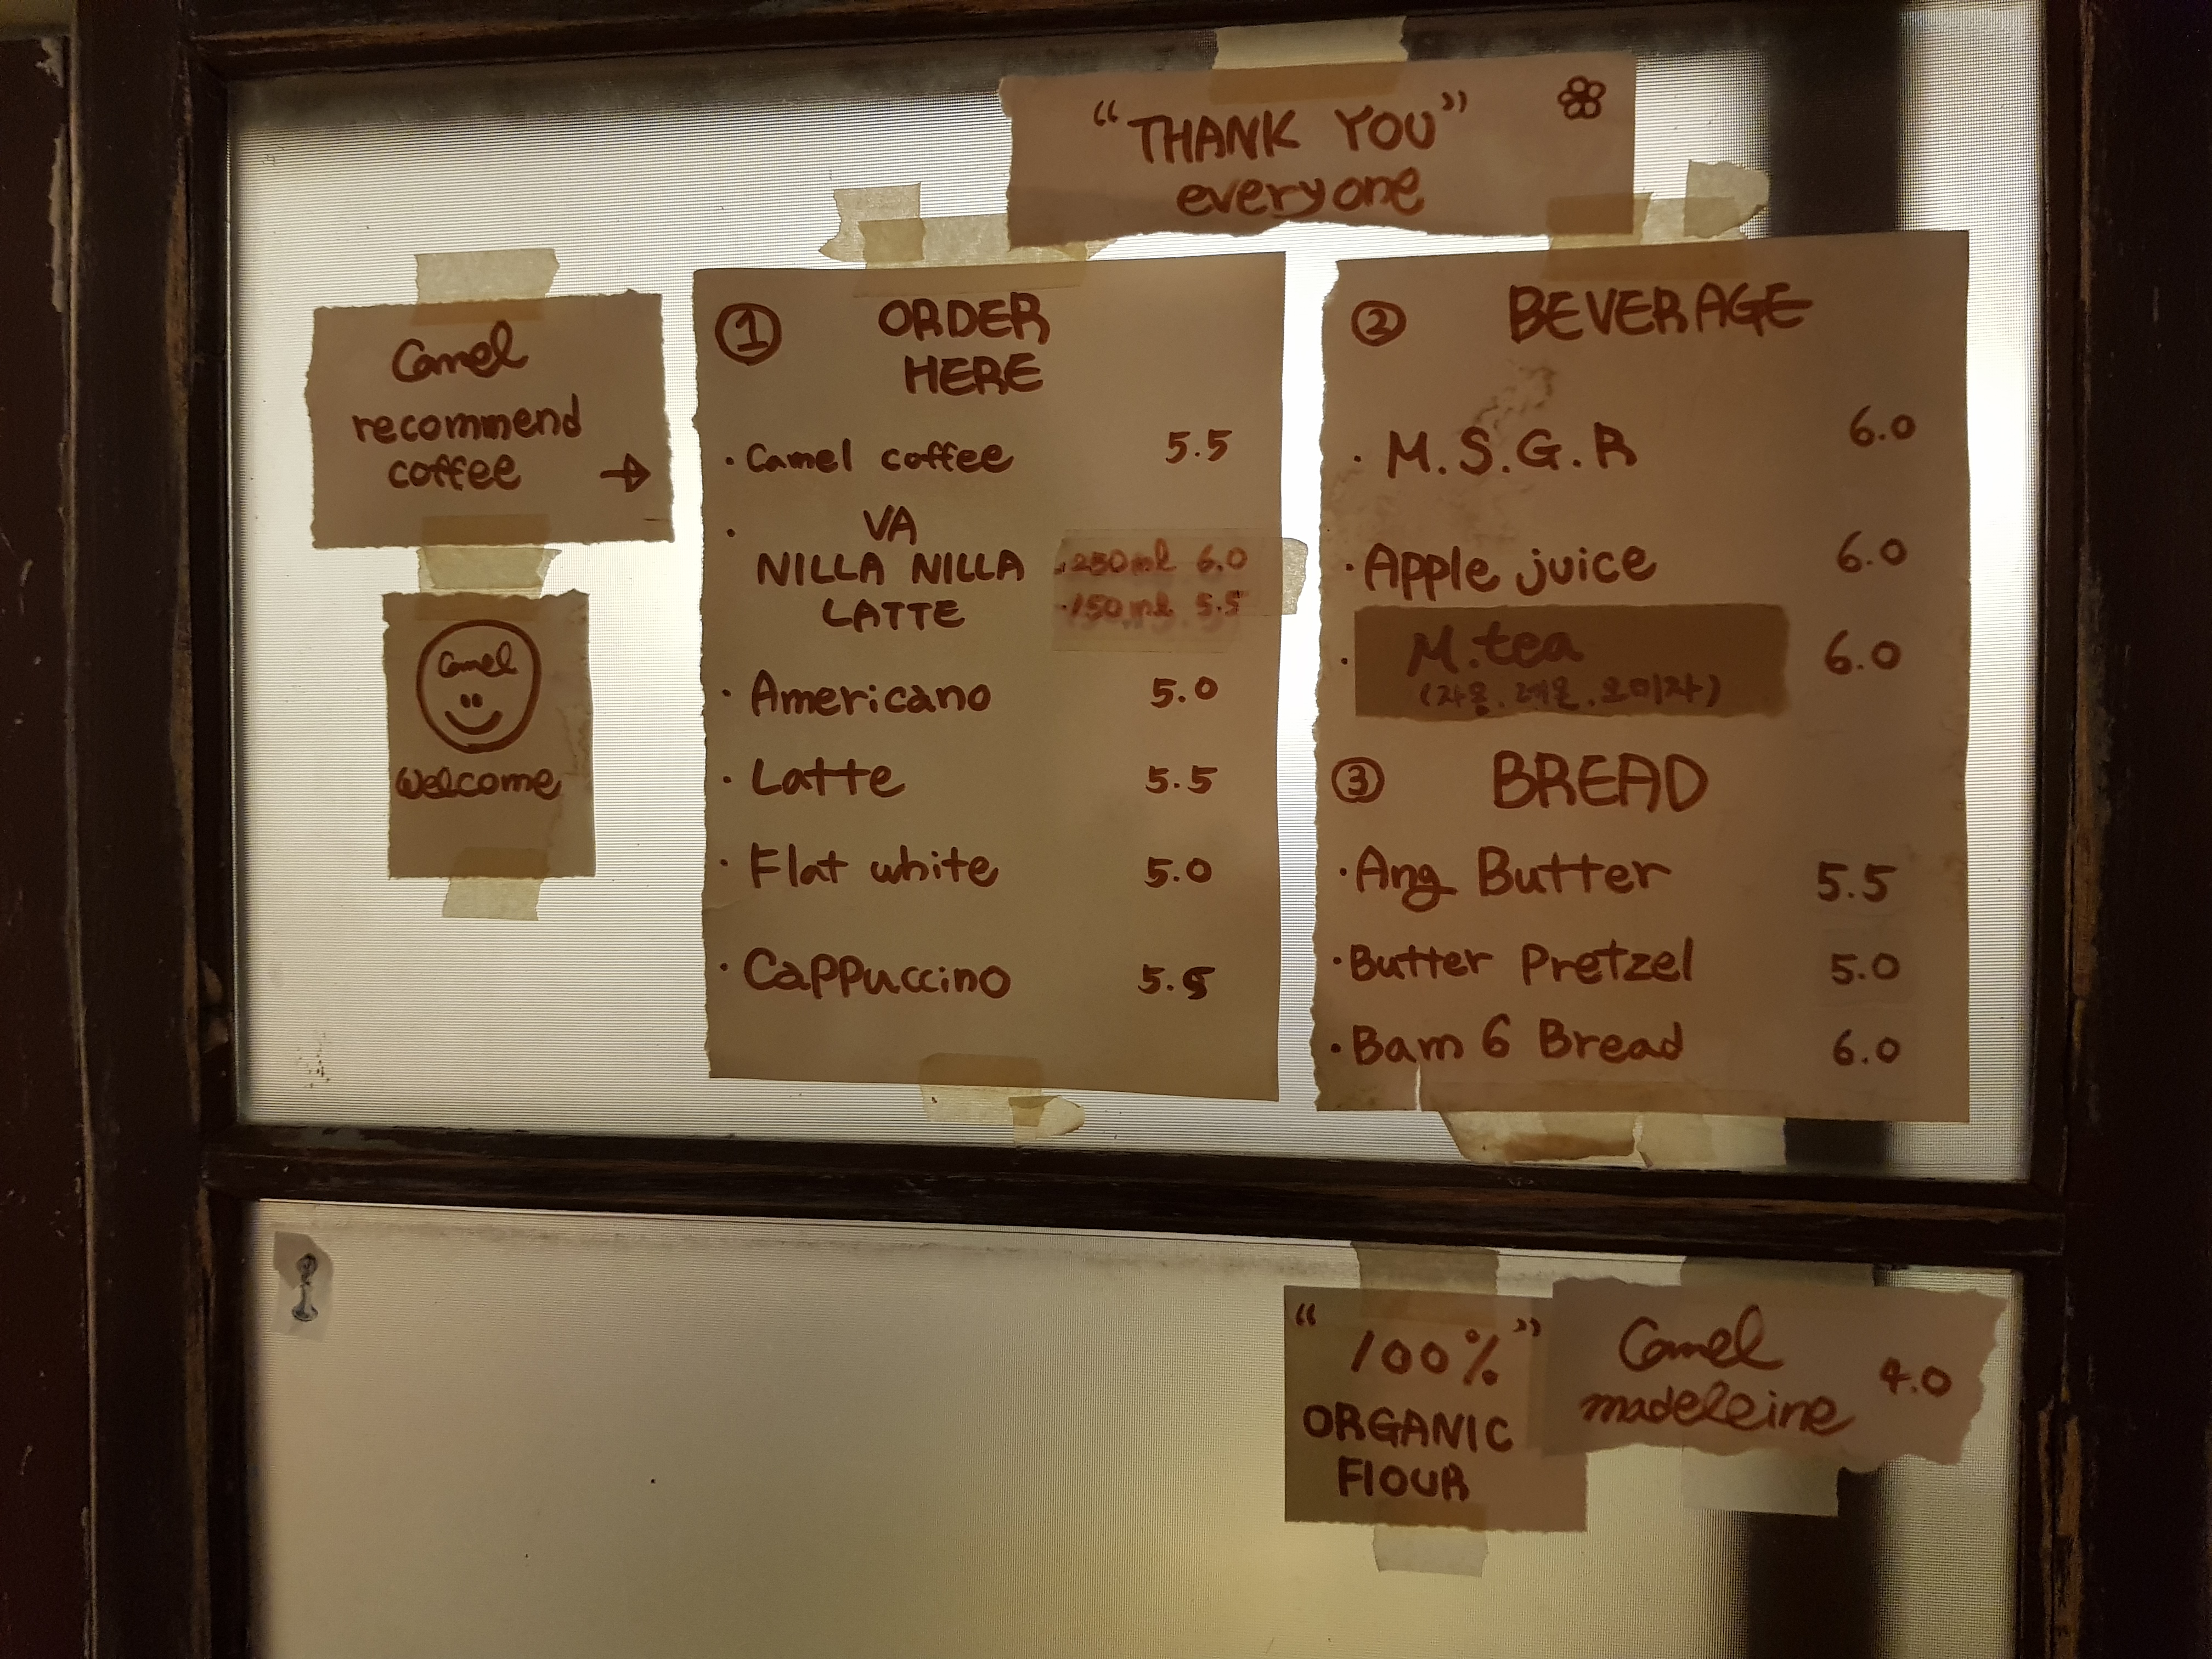 “THANK YOU”
everyone
Camel
recommend
coffee →
Camel
Welcome
① ORDER
HERE
· Camel coffee 5.5
· VA
NILLA NILLA
LATTE
· 250ml 6.0
· 150ml 5.5
· Americano 5.0
· Latte 5.5
· Flat white 5.0
· Cappuccino 5.5
② BEVERAGE
· M.S.G.R 6.0
· Apple juice 6.0
· M.tea 6.0
(자몽. 레몬. 오미자)
③ BREAD
· Ang Butter 5.5
· Butter Pretzel 5.0
· Bam 6 Bread 6.0
“100%”
ORGANIC
FlOUR
Camel
madeleine 4.0